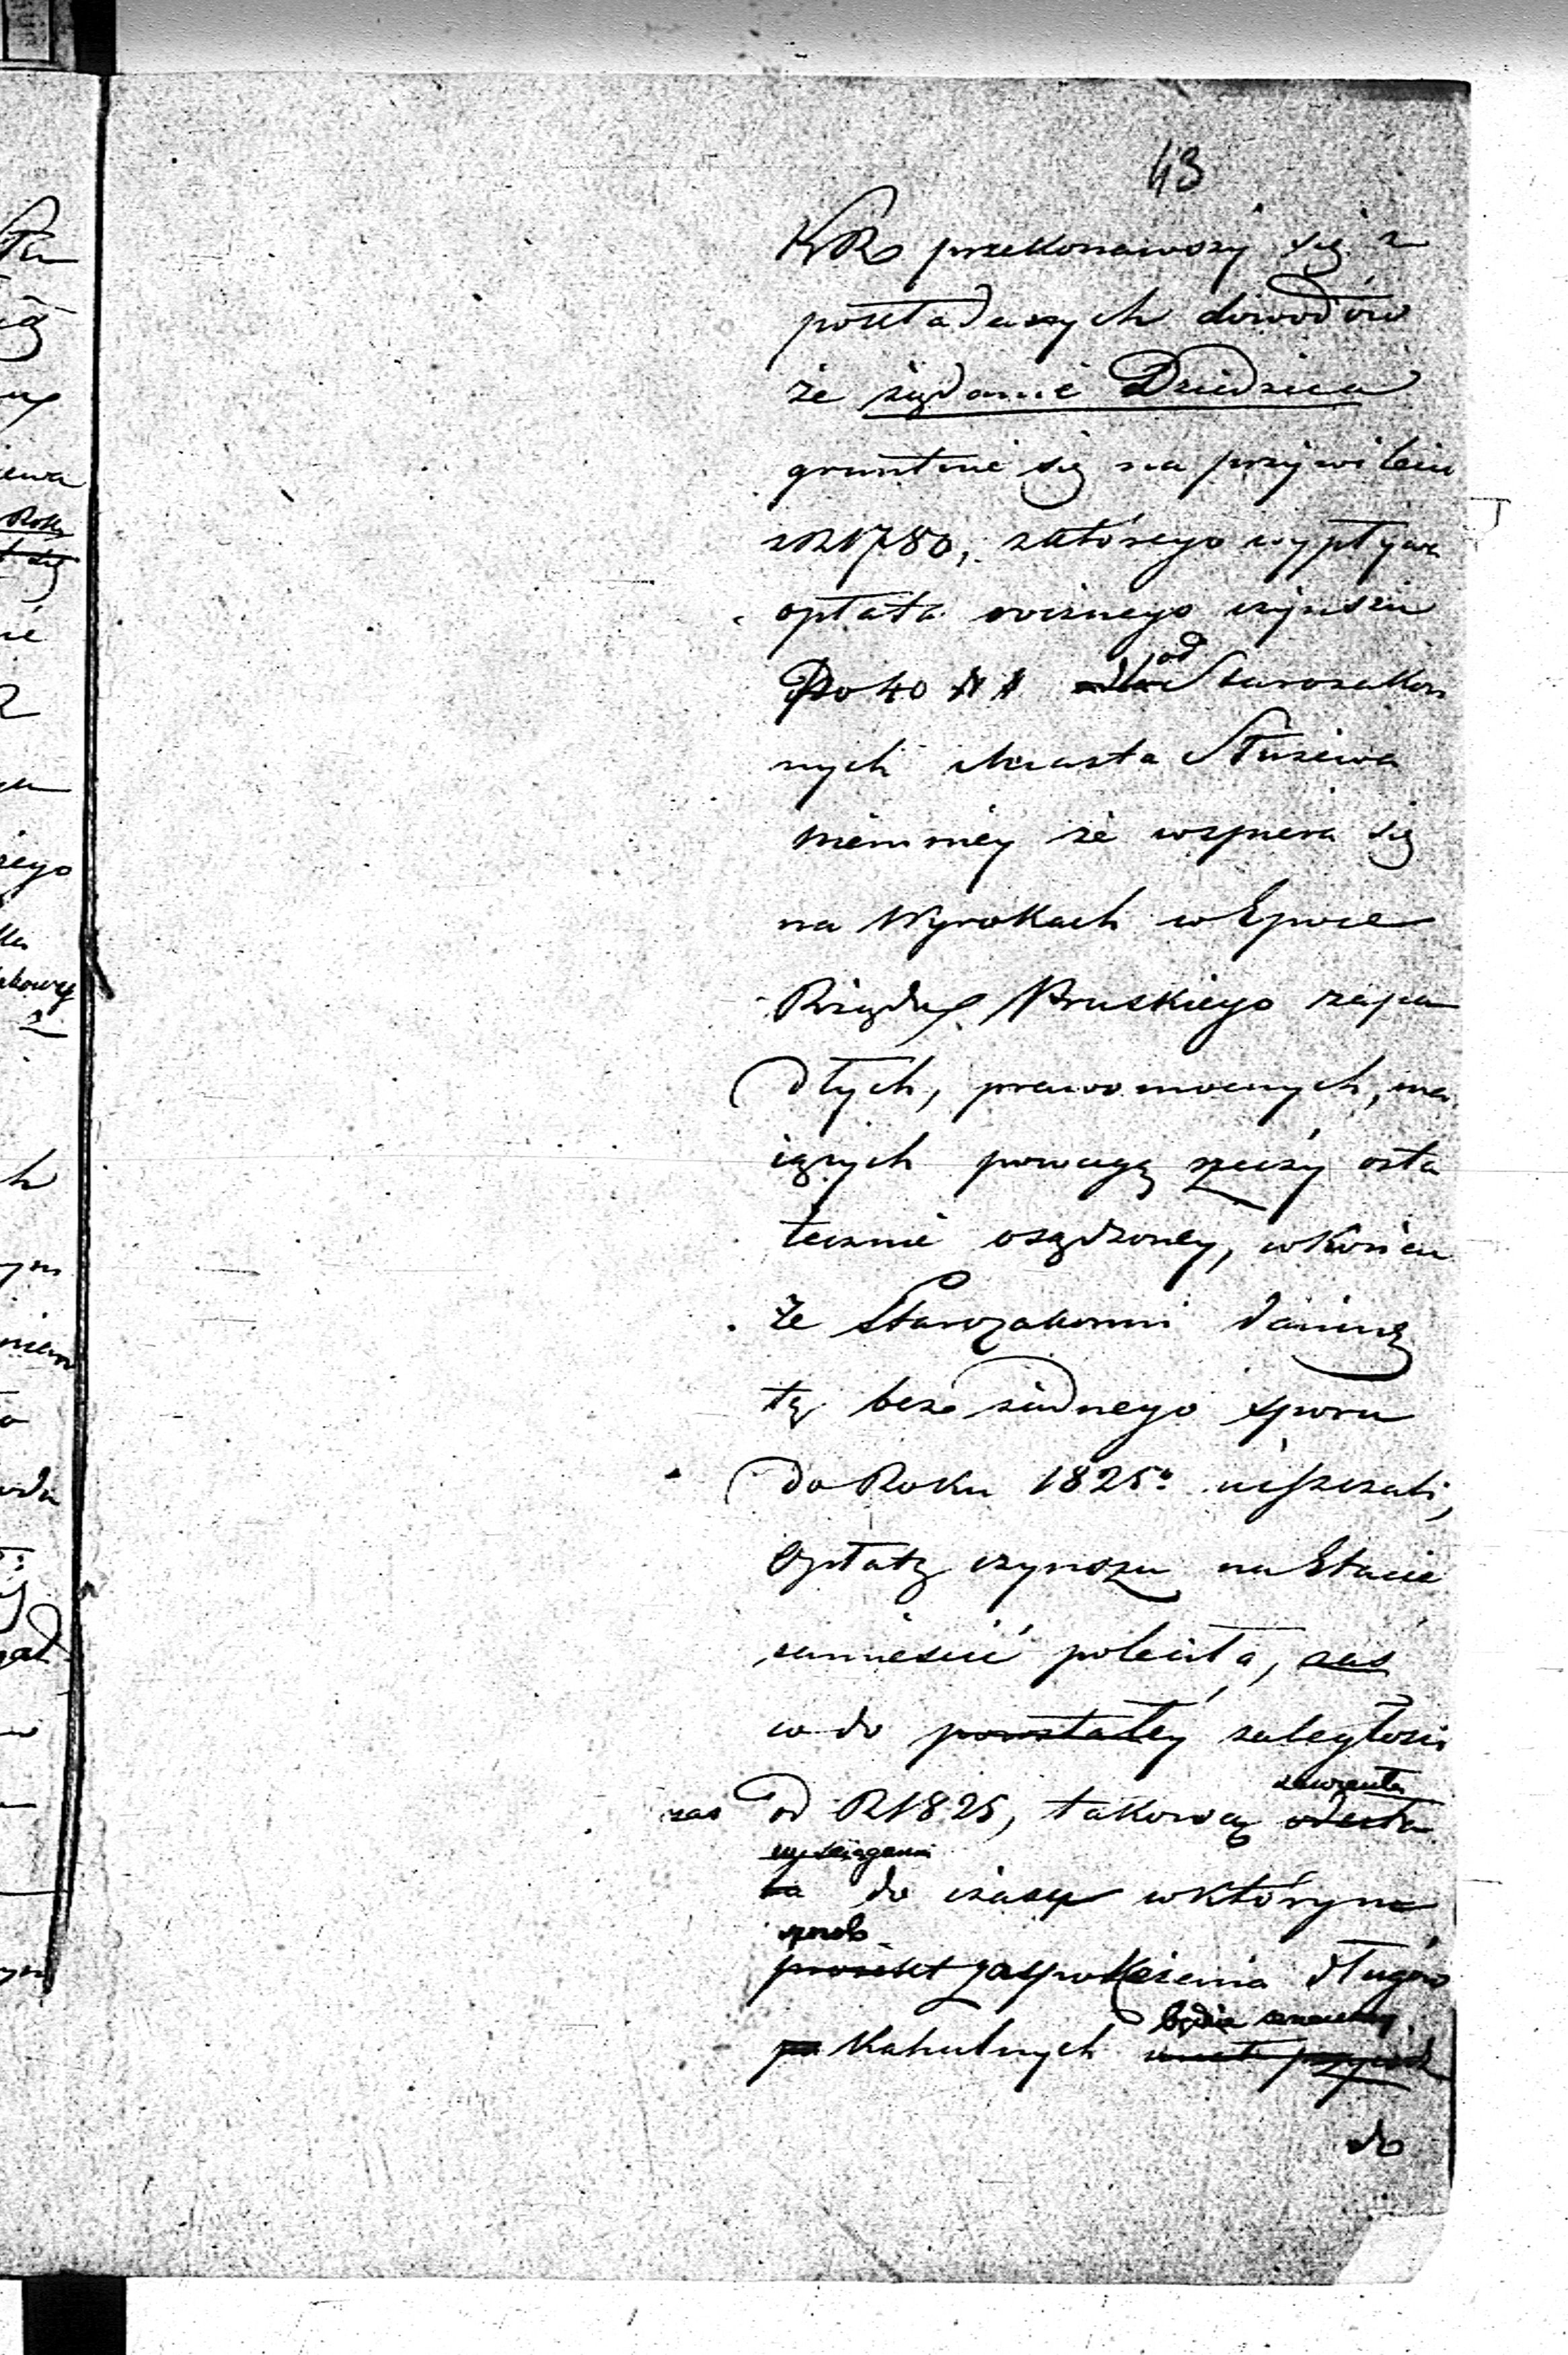 43
KR przekonawszy się z
poskładanych dowodów
że żądanie Dziedzica
gruntuie się na przywileiu
z R 1780, z którego wypływa
opłata rocznego czynszu
Po 40 # # od Starozakon
nych Miasta Służewa
niemniey że wspiera się
na Wyrokach w Epoce
Rządu Pruskiego zapa
dłych, prawomocnych, ma
iących powagę rzeczy osta
tecznie osądzoney, w końcu
że Starozakonni daninę
tę bez żadnego sporu
do Roku 1825o uiszczali,
Opłatę czynszu na Etacie
zamieścić poleciła, zaś
w do powstałey zaległości
zaś od R 1825, takową odesła
ła do czasu w którym
sposob
proiekt zaspokoienia długów
Kahalnych
będzie
do